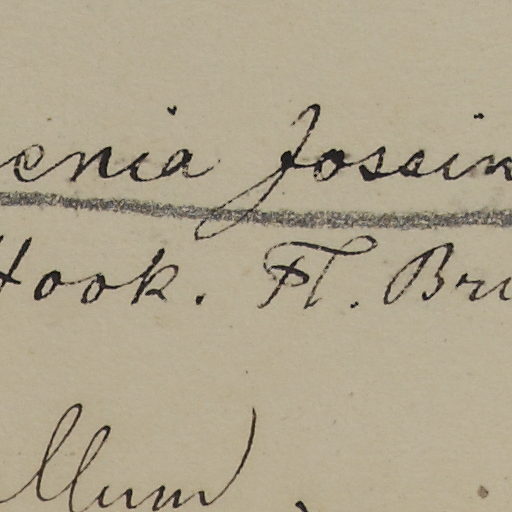 enia Jossin
Hook. Fl. Bri
llum